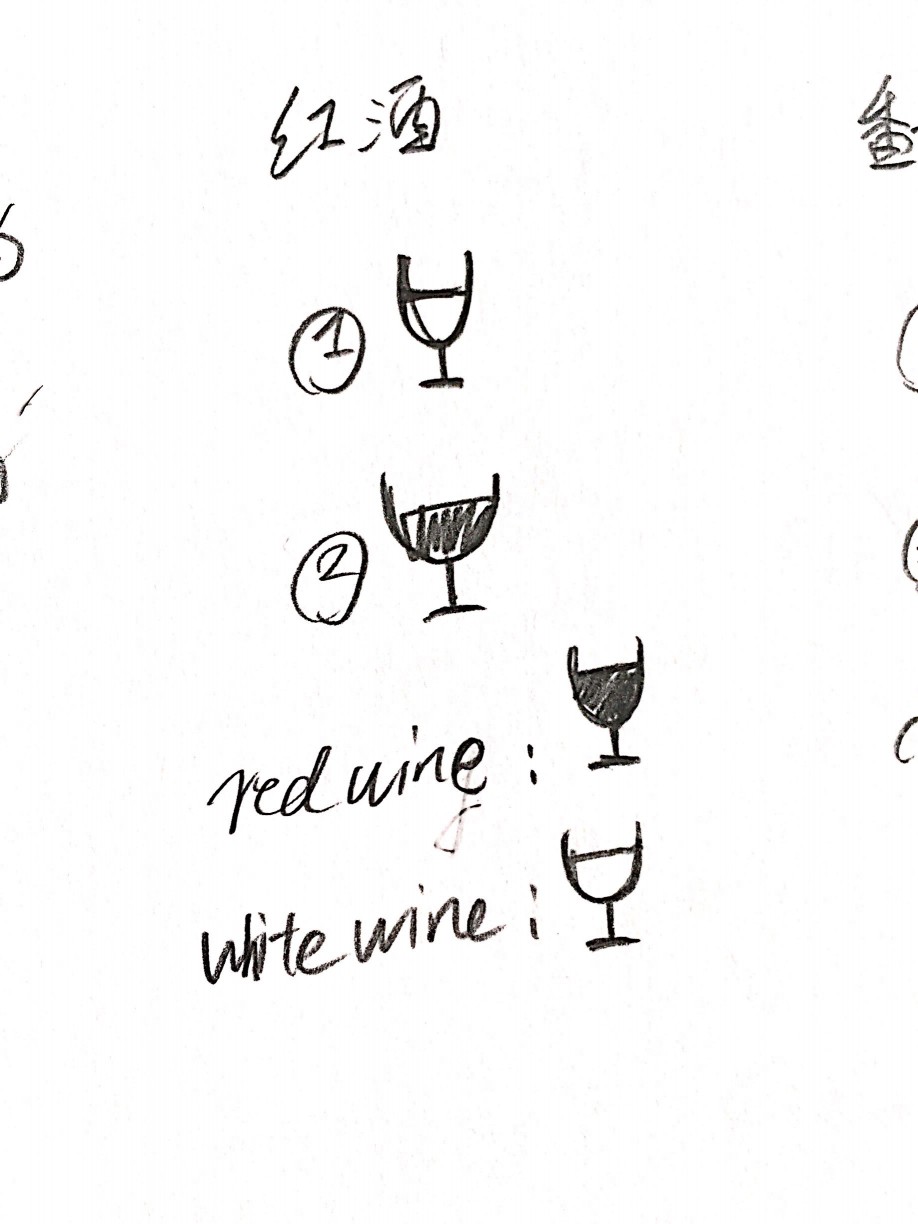 红酒
①
②
red wine :
white wine :